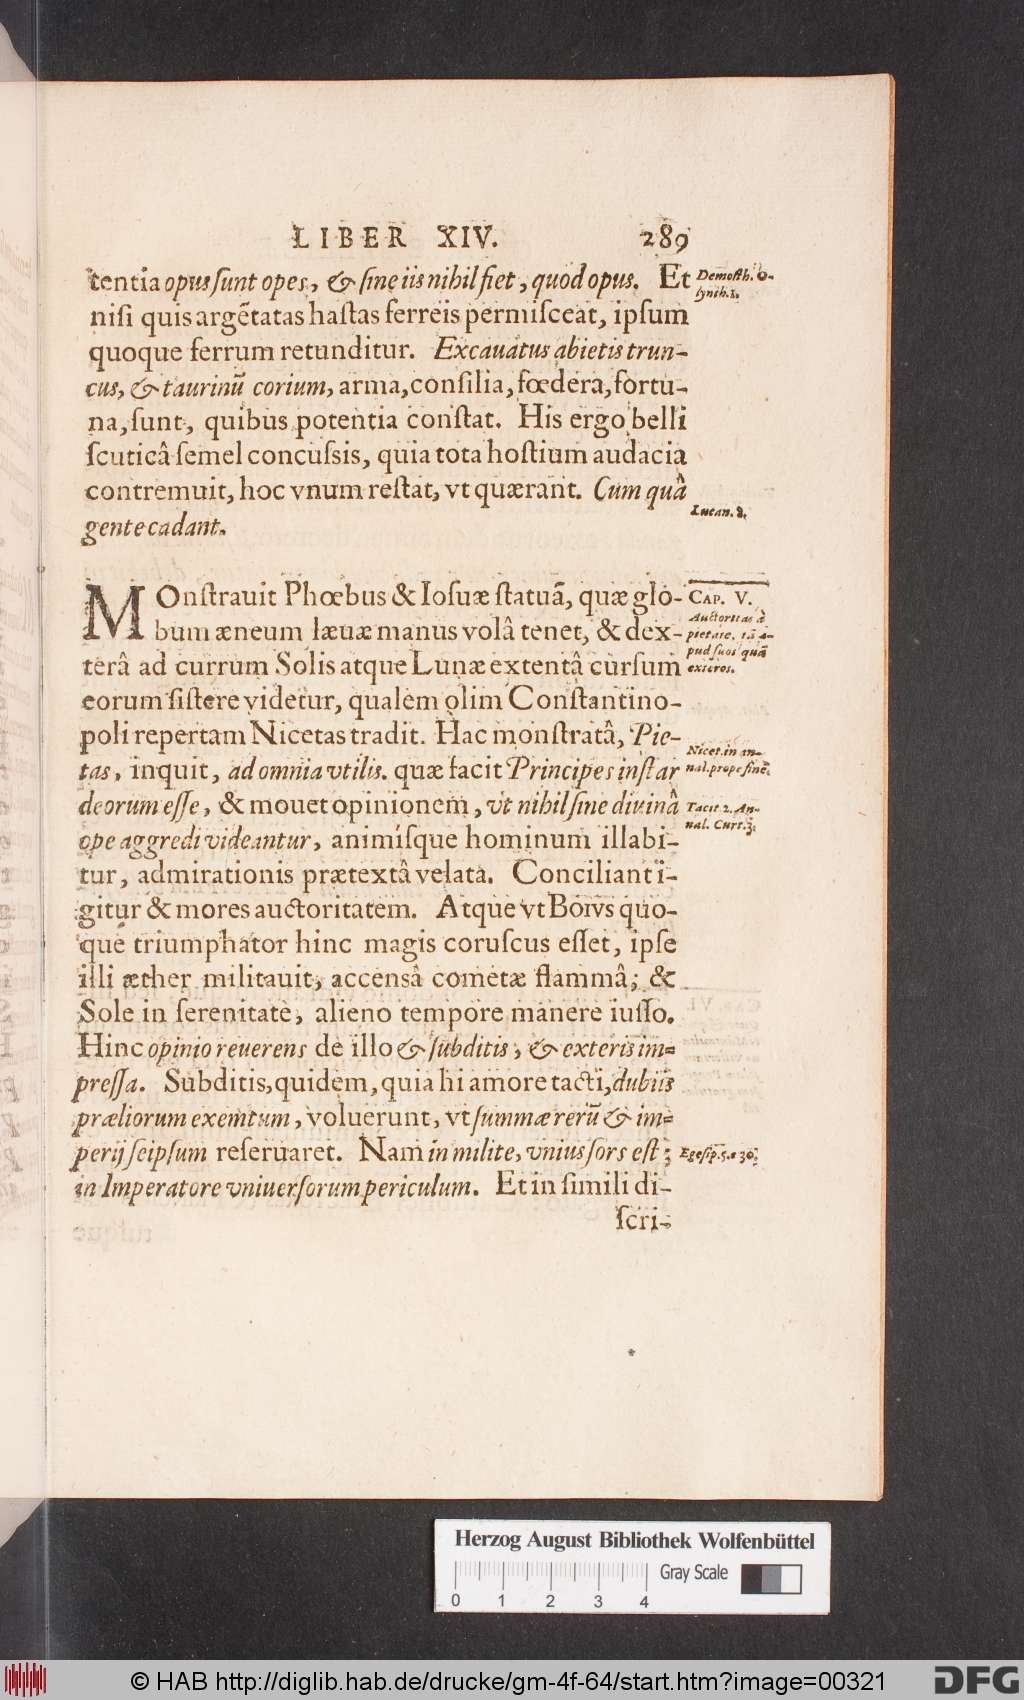 LIBER XIV. 289
tentia opus sunt opes, & sine iis nihil fiet, quod opus. Et
Demosth. O-
lynth. 1.
nisi quis argẽtatas hastas ferreis permisceat, ipsum
quoque ferrum retunditur. Excauatus abietis trun-
cus, & taurinũ corium, arma, consilia, fœdera, fortu-
na, sunt, quibus potentia constat. His ergo belli
scuticâ semel concussis, quia tota hostium audacia
contremuit, hoc vnum restat, vt quærant. Cum quâ
Lucan. 8.
gente cadant.
MOnstrauit Phœbus & Iosuæ statuã, quæ glo-
CAP. V.
Auctoritas à
pietate, tã a-
pud suos quã
exteros.
bum æneum læuæ manus volâ tenet, & dex-
terâ ad currum Solis atque Lunæ extentâ cursum
eorum sistere videtur, qualem olim Constantino-
poli repertam Nicetas tradit. Hac monstratâ, Pie-
Nicet. in an-
nal. prope finẽ.
tas, inquit, ad omnia vtilis. quæ facit Principes instar
deorum esse, & mouet opinionem, vt nihil sine diuinâ
Tacit 2. An-
nal. Curt. 3.
ope aggredi videantur, animísque hominum illabi-
tur, admirationis prætextâ velata. Conciliant i-
gitur & mores auctoritatem. Atque vt BOIVS quo-
que triumphator hinc magis coruscus esset, ipse
illi æther militauit, accensâ cometæ flammâ; &
Sole in serenitate, alieno tempore manere iusso.
Hinc opinio reuerens de illo & subditis, & exteris im-
pressa. Subditis, quidem, quia hi amore tacti, dubiis
præliorum exemtum, voluerunt, vt summæ rerũ & im-
perij seipsum reseruaret. Nam in milite, vnius sors est;
Egesip. 5. c 30.
in Imperatore vniuersorum periculum. Et in simili di-
scri-
Herzog August Bibliothek Wolfenbüttel
Gray Scale
0 1 2 3 4
© HAB http://diglib.hab.de/drucke/gm-4f-64/start.htm?image=00321
DFG